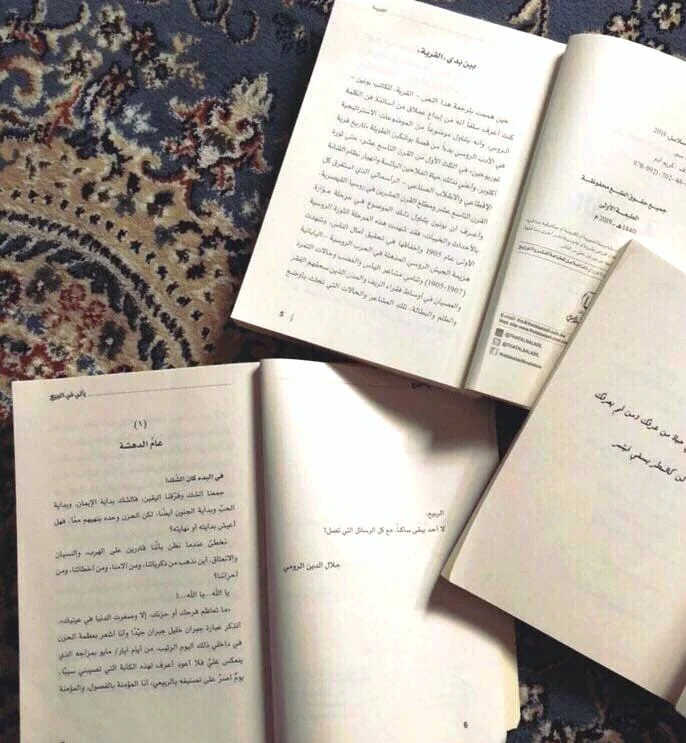 القرية
بين يدي «القرية»
حين هممت بترجمة هذا النص – القرية، للكاتب بونين –
كنت أعرف سلفاً أنه من إبداع عملاق من أساتذة فن الكلمة
الروس، وأنه يتناول موضوعاً من الموضوعات الاستراتيجية
في الأدب الروسي بدءاً من قصة بوشكين الطويلة «تاريخ قرية
غوريوخين» في الثلث الأول من القرن التاسع عشر، حتى ثورة
أكتوبر، وأعني بذلك حياة الفلاحين البائسة وانهيار نظام القنانة
الإقطاعي والانقلاب الصناعي - الرأسمالي الذي استغرق كل
القرن التاسع عشر ومطلع القرن العشرين في روسيا القيصرية.
وأعرف أن بونين يتناول ذلك الموضوع في مرحلة موّارة
بالأحداث والخيبات، فقد شهدت هذه المرحلة الثورة الروسية
الأولى عام 1905 وإخفاقها في تحقيق آمال الناس، وشهدت
هزيمة الجيش الروسي المذهلة في الحرب الروسية - اليابانية
(1905-1907) وتنامي مشاعر اليأس والغضب وحالات التمرد
والعصيان في أوساط فقراء الريف والمدن الذين سحقهم الفقر
والظلم والبطالة. تلك المشاعر والحالات التي تجلت بأوضح
5
جميع حقوق الطبع محفوظة
الطبعة الأولى
1440هـ-2019 م
@THATALSALASIL
@THATALSALASIL
يأتي في الربيع
(١)
عامُ الدهشة
في البدء كان الشك!
جمعنا الشك وفرّقنا اليقين، فالشك بداية الإيمان، وبداية
الحبّ وبداية الجنون أيضًا، لكن الحزن وحده ينهيهم معًا، فهل
أعيش بدايته أو نهايته؟
نخطئ عندما نظن بأنّنا قادرين على الهرب، والنسيان
والانعتاق. أين نذهب من ذكرياتنا، ومن آلامنا، ومن أخطائنا، ومن
أحزاننا؟
يا الله... يا الله...!
«ما تعاظم فرحك أو حزنك، إلا وصغرت الدنيا في عينيك».
أتذكر عبارة جبران خليل جبران جيّدًا وأنا أشعر بعظمة الحزن
في داخلي ذلك اليوم الرتيب، من أيام أيار/ مايو بمزاجه الذي
ينعكس عليّ فلا أعود أعرف لهذه الكآبة التي تصيبني سببًا،
يومٌ أصرُّ على تصنيفه بالربيعي، أنا المؤمنة بالفصول، والمؤمنة
الربيع.
لا أحد يبقى ساكناً، مع كل الرسائل التي تصل!
جلال الدين الرومي
6
حبة من عرفك ومن لم يعرفك
كالعطر يسقي فيثمر